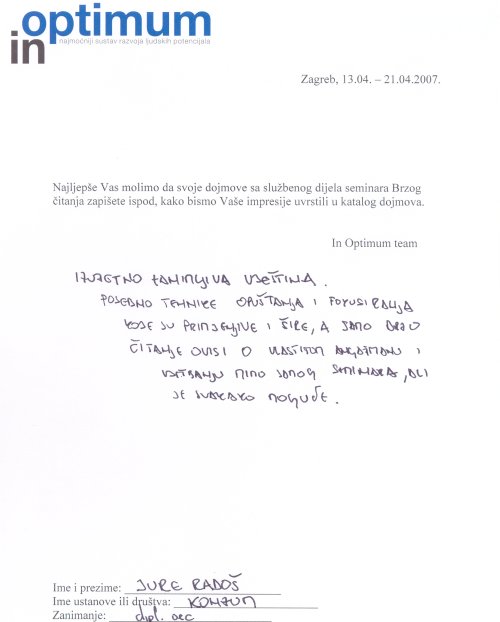 in optimum
najmoćniji sustav razvoja ljudskih potencijala
Zagreb, 13.04. – 21.04.2007.
Najljepše Vas molimo da svoje dojmove sa službenog dijela seminara Brzog
čitanja zapišete ispod, kako bismo Vaše impresije uvrstili u katalog dojmova.
In Optimum team
IZUZETNO ZANIMLJIVA VJEŠTINA.
POSEBNO TEHNIKE OPUŠTANJA I FOKUSIRANJA
KOJE SU PRIMJENJIVE I ŠIRE, A SAMO BRZO
ČITANJE OVISI O VLASTITOM ANGAŽMANU I
VJEŽBANJU MIMO SAMOG SEMINARA, ALI
JE SVAKAKO MOGUĆE.
Ime i prezime: JURE RADOŠ
Ime ustanove ili društva: KONZUM
Zanimanje: dipl. oec